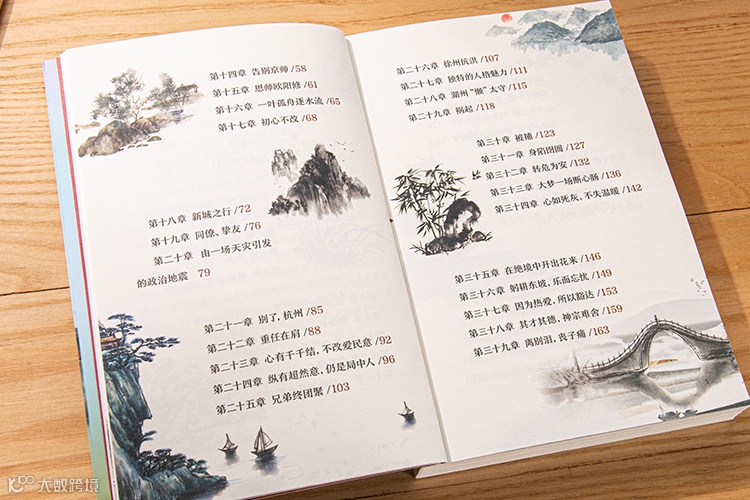 第十四章 告别京师/58
第十五章 恩师欧阳修/61
第十六章 一叶孤舟逐水流/65
第十七章 初心不改/68
第十八章 新城之行/72
第十九章 同僚、挚友/76
第二十章 由一场天灾引发
的政治地震 79
第二十一章 别了,杭州/85
第二十二章 重任在肩/88
第二十三章 心有千千结,不改爱民意/92
第二十四章 纵有超然意,仍是局中人/96
第二十五章 兄弟终团聚/103
第二十六章 徐州抗洪/107
第二十七章 独特的人格魅力/111
第二十八章 湖州“懒”太守/115
第二十九章 祸起/118
第三十章 被捕/123
第三十一章 身陷囹圄/127
第三十二章 转危为安/132
第三十三章 大梦一场断心肠/136
第三十四章 心如死灰,不失温暖/142
第三十五章 在绝境中开出花来/146
第三十六章 躬耕东坡,乐而忘忧/149
第三十七章 因为热爱,所以豁达/153
第三十八章 其才其德,神宗难舍/159
第三十九章 离别泪,丧子痛/163
大数跨境